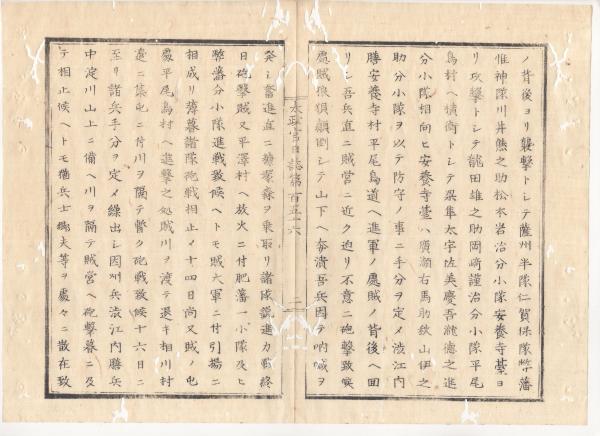 ノ背後ヨリ襲撃トシテ薩州半隊仁賀保隊幣藩
惟神隊川井熊之助松本岩治分小隊安養寺臺ヨ
リ攻撃トシテ龍田雄之助岡崎謹治分小隊平尾
鳥村ヘ横衝トシテ梁隼太宇佐美慶吾瀧德之進
分小隊相向ヒ安養寺臺ハ廣瀬右馬助秋山伊之
助分小隊ヲ以テ防守ノ事ニ手分ヲ定メ渋江内
膳安養寺村平尾鳥道ヘ進軍ノ處賊ノ背後ヘ回
リシ吾兵直ニ賊営ニ近ク迫リ不意ニ砲撃致候
處賊狼狽顛倒シテ山下ヘ奔潰吾兵因テ吶喊ヲ
太政官日誌第百五十六
二
発シ奮進直ニ糠塚森ヲ乗取リ諸隊鋭進力戦終
日砲撃賊又平澤村ヘ放火ニ付肥藩一小隊及ヒ
幣藩分小隊進戦致候ヘトモ賊大軍ニ付引揚ニ
相成リ薄暮諸隊砲戦相止メ十四日尚又賊ノ屯
處平尾鳥村ヘ進撃之処賊川ヲ渡テ退キ相川村
邉ニ集屯ニ付川ヲ隔テ暫ク砲戦致候十六日ニ
至リ諸兵手分ヲ定メ繰出シ因州兵渋江内膳兵
中淀川山上ニ備ヘ川ヲ隔テ賊営ヘ砲撃暮ニ及
テ相止候ヘトモ猶兵士郷夫等ヲ處々ニ散在致